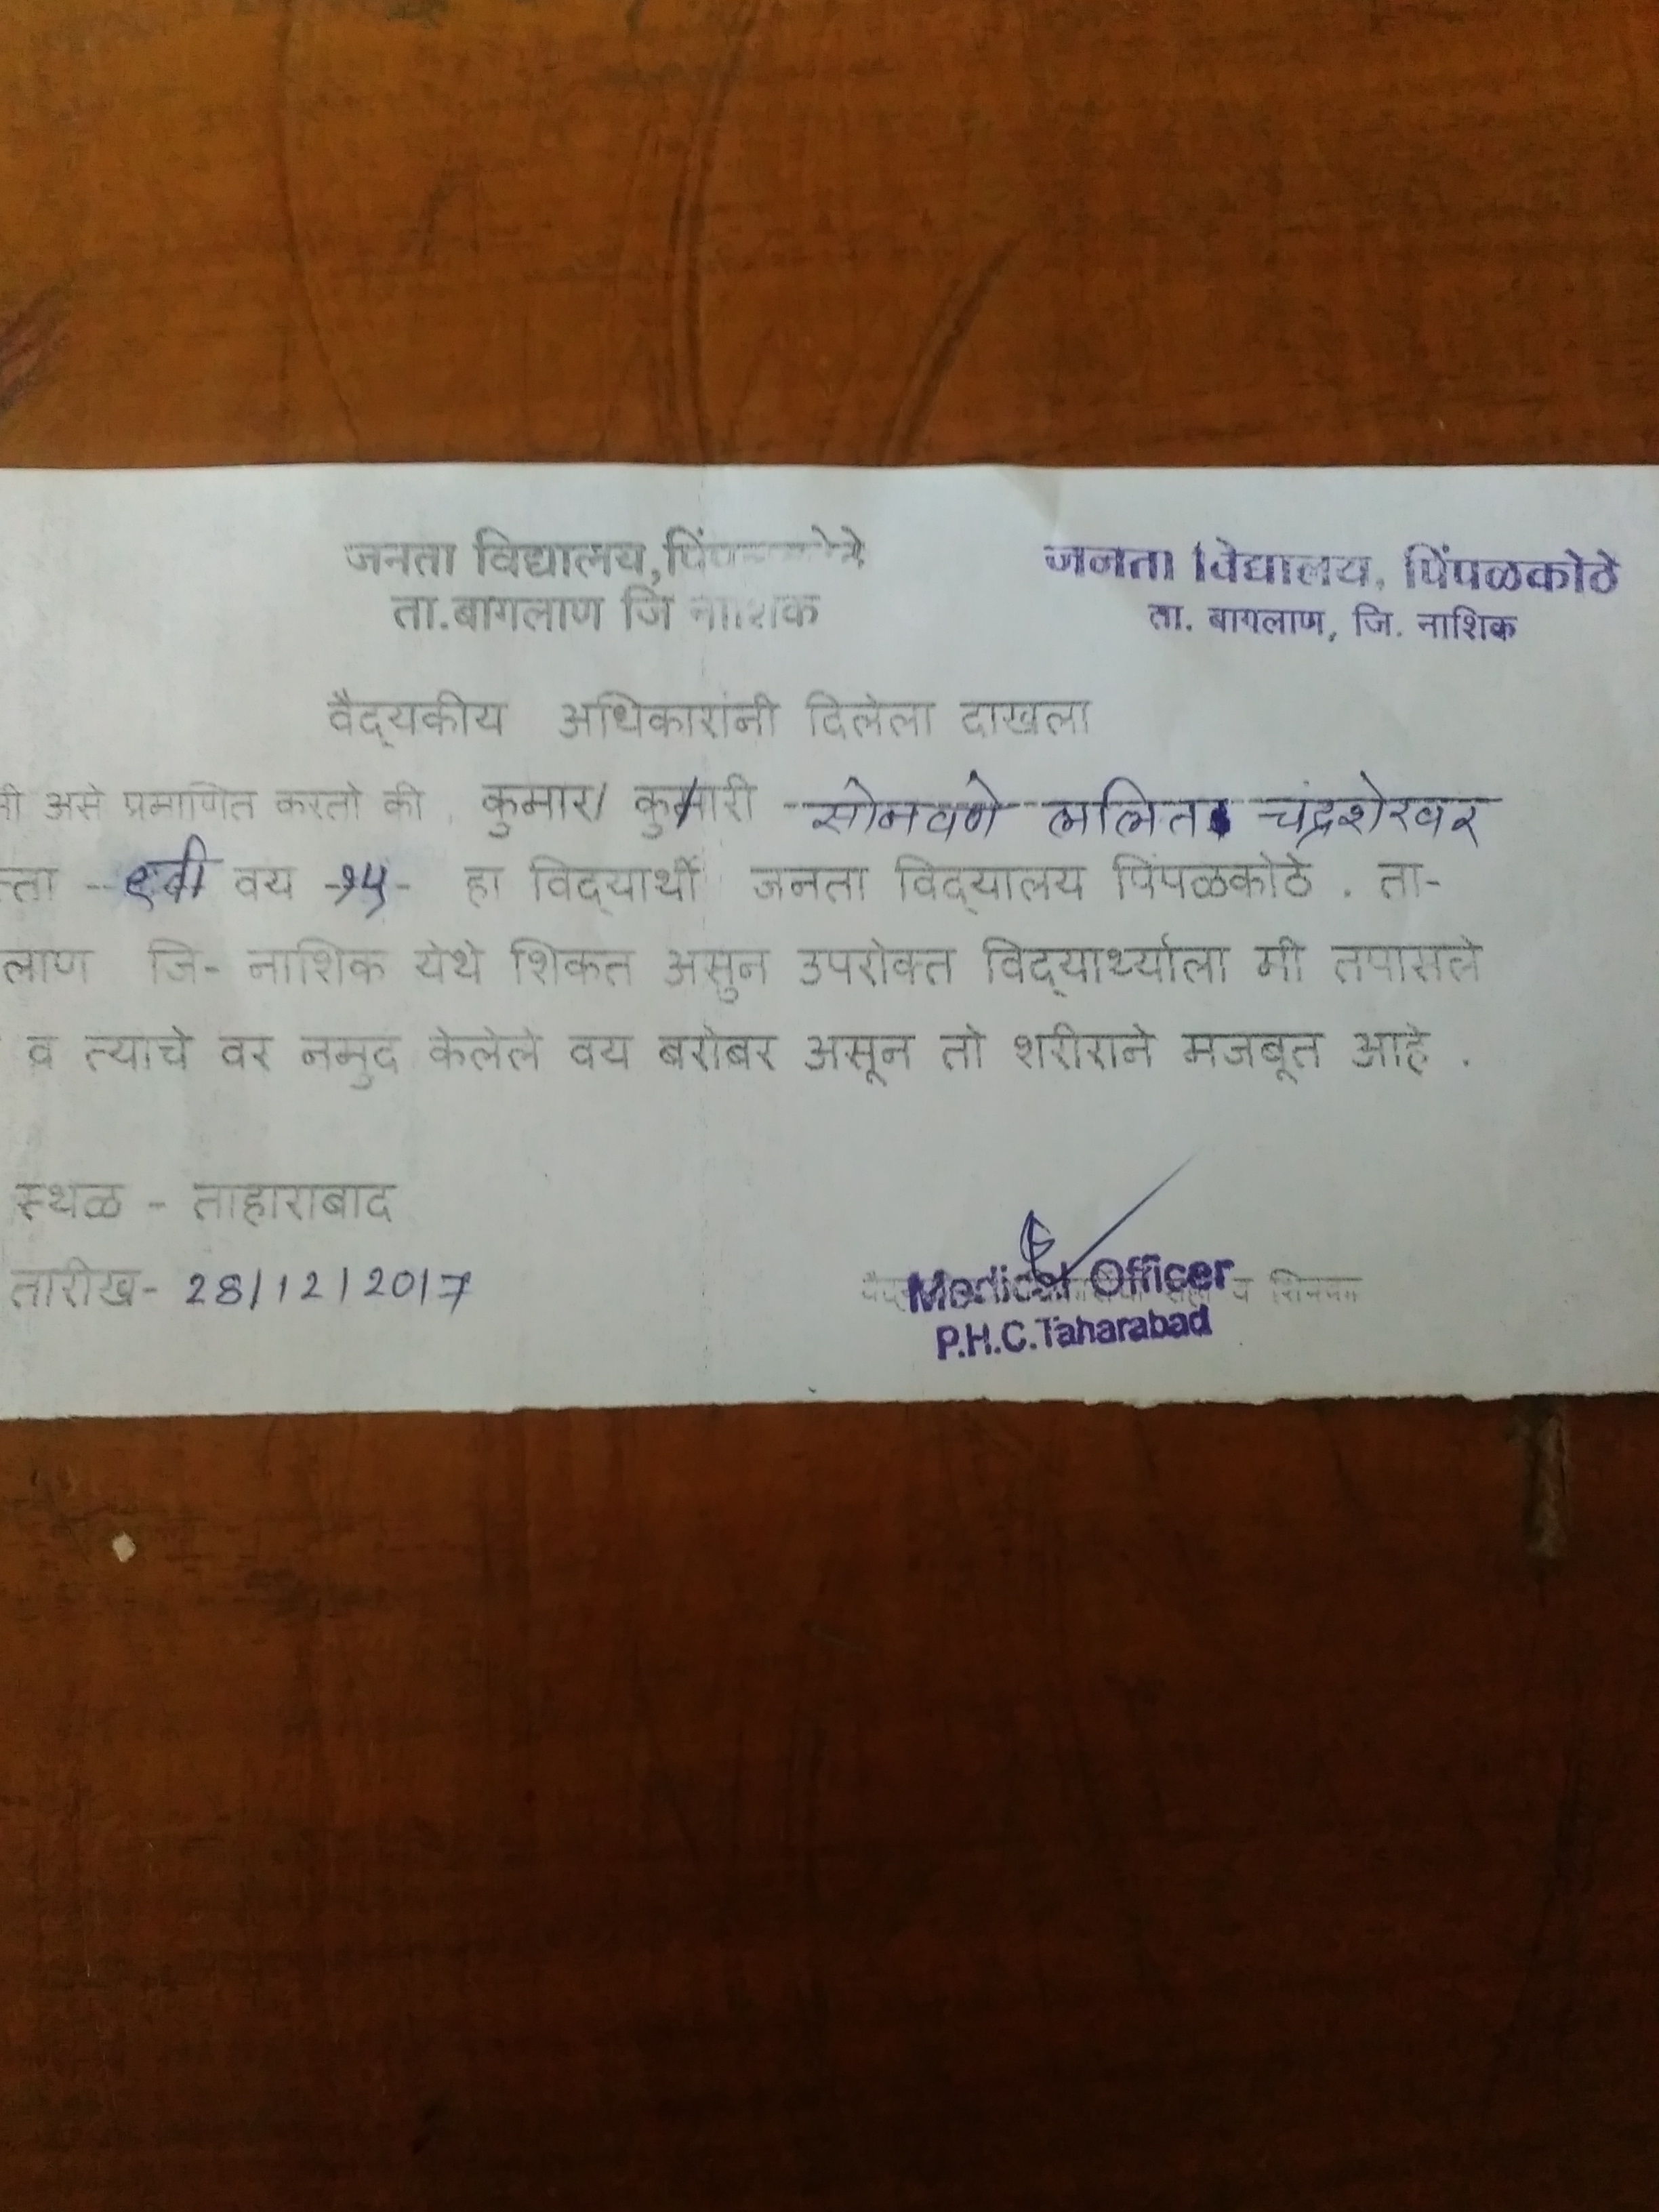 जनता विद्यालय,
ता.बागलाण जि नाशिक
जनता विद्यालय, पिंपळकोठे
ता. बागलाण, जि. नाशिक
वैद्यकीय अधिकारांनी दिलेला दाखला
मी असे प्रमाणित करतो की . कुमार/ कुमारी सोनवणे ललित चंद्रशेखर
त्ता -- ९वी वय -१५- हा विद्यार्थी जनता विद्यालय पिंपळकोठे . ता-
लाण जि- नाशिक येथे शिकत असुन उपरोक्त विद्यार्थ्याला मी तपासले
व त्याचे वर नमुद केलेले वय बरोबर असून तो शरीराने मजबूत आहे .
स्थळ - ताहाराबाद
तारीख- 28/12/2017
Medical Officer
P.H.C.Taharabad